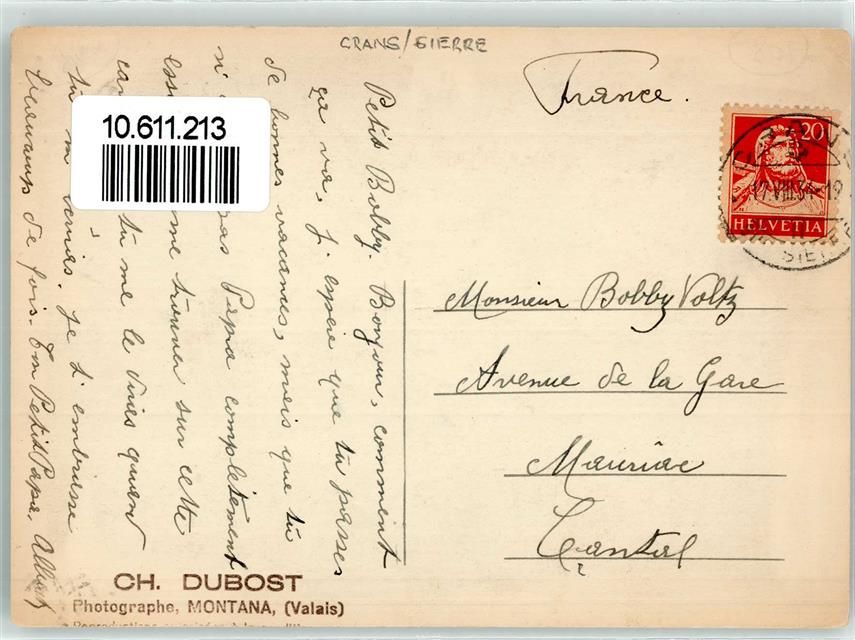 CRANS/SIERRE
France.
20
17.VIII.34-19
HELVETIA
10.611.213
Petit Bobby. Bonjour, comment
ça va, j'espère que tu passes
de bonnes vacances, mais que tu
n' pas Papa complètement
me trouver sur cette
tu me le diras quand
tu m Je t'embrasse
beaucoup de fois. Ton Petit Papa. Albert
Monsieur Bobby Voltz
Avenue de la Gare
Mauriac
Cantal
CH. DUBOST
Photographe, MONTANA, (Valais)